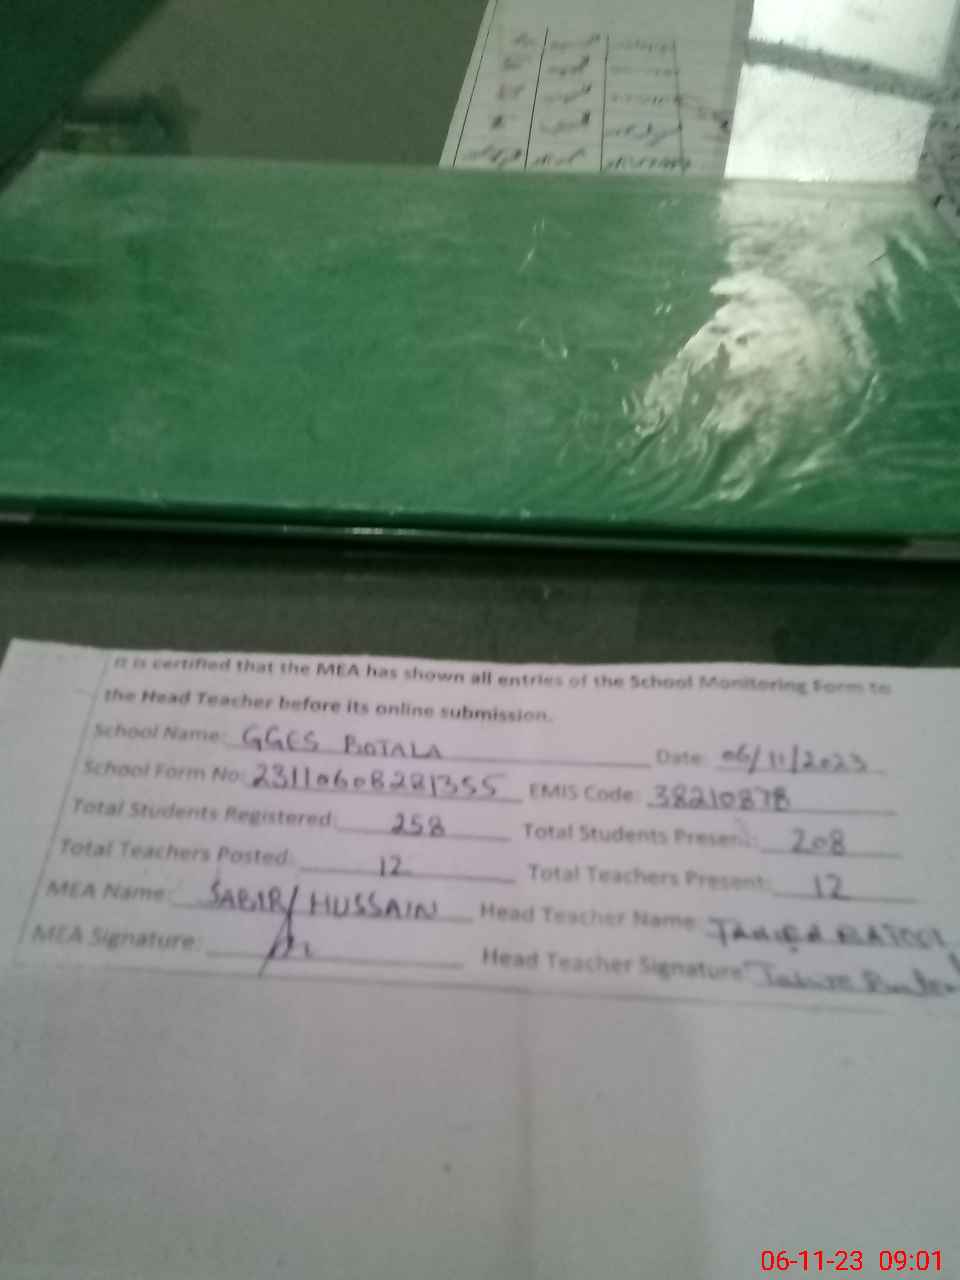 It is certified that the MEA has shown all entries of the School Monitoring Form to
the Head Teacher before its online submission.
School Name: GGES BOTALA Date: 06/11/2023
School Form No: 23110608281355 EMIS Code: 38210878
Total Students Registered: 258 Total Students Present: 208
Total Teachers Posted: 12 Total Teachers Present: 12
MEA Name: SABIR HUSSAIN Head Teacher Name: BATOOL
MEA Signature: Head Teacher Signature
06-11-23 09:01